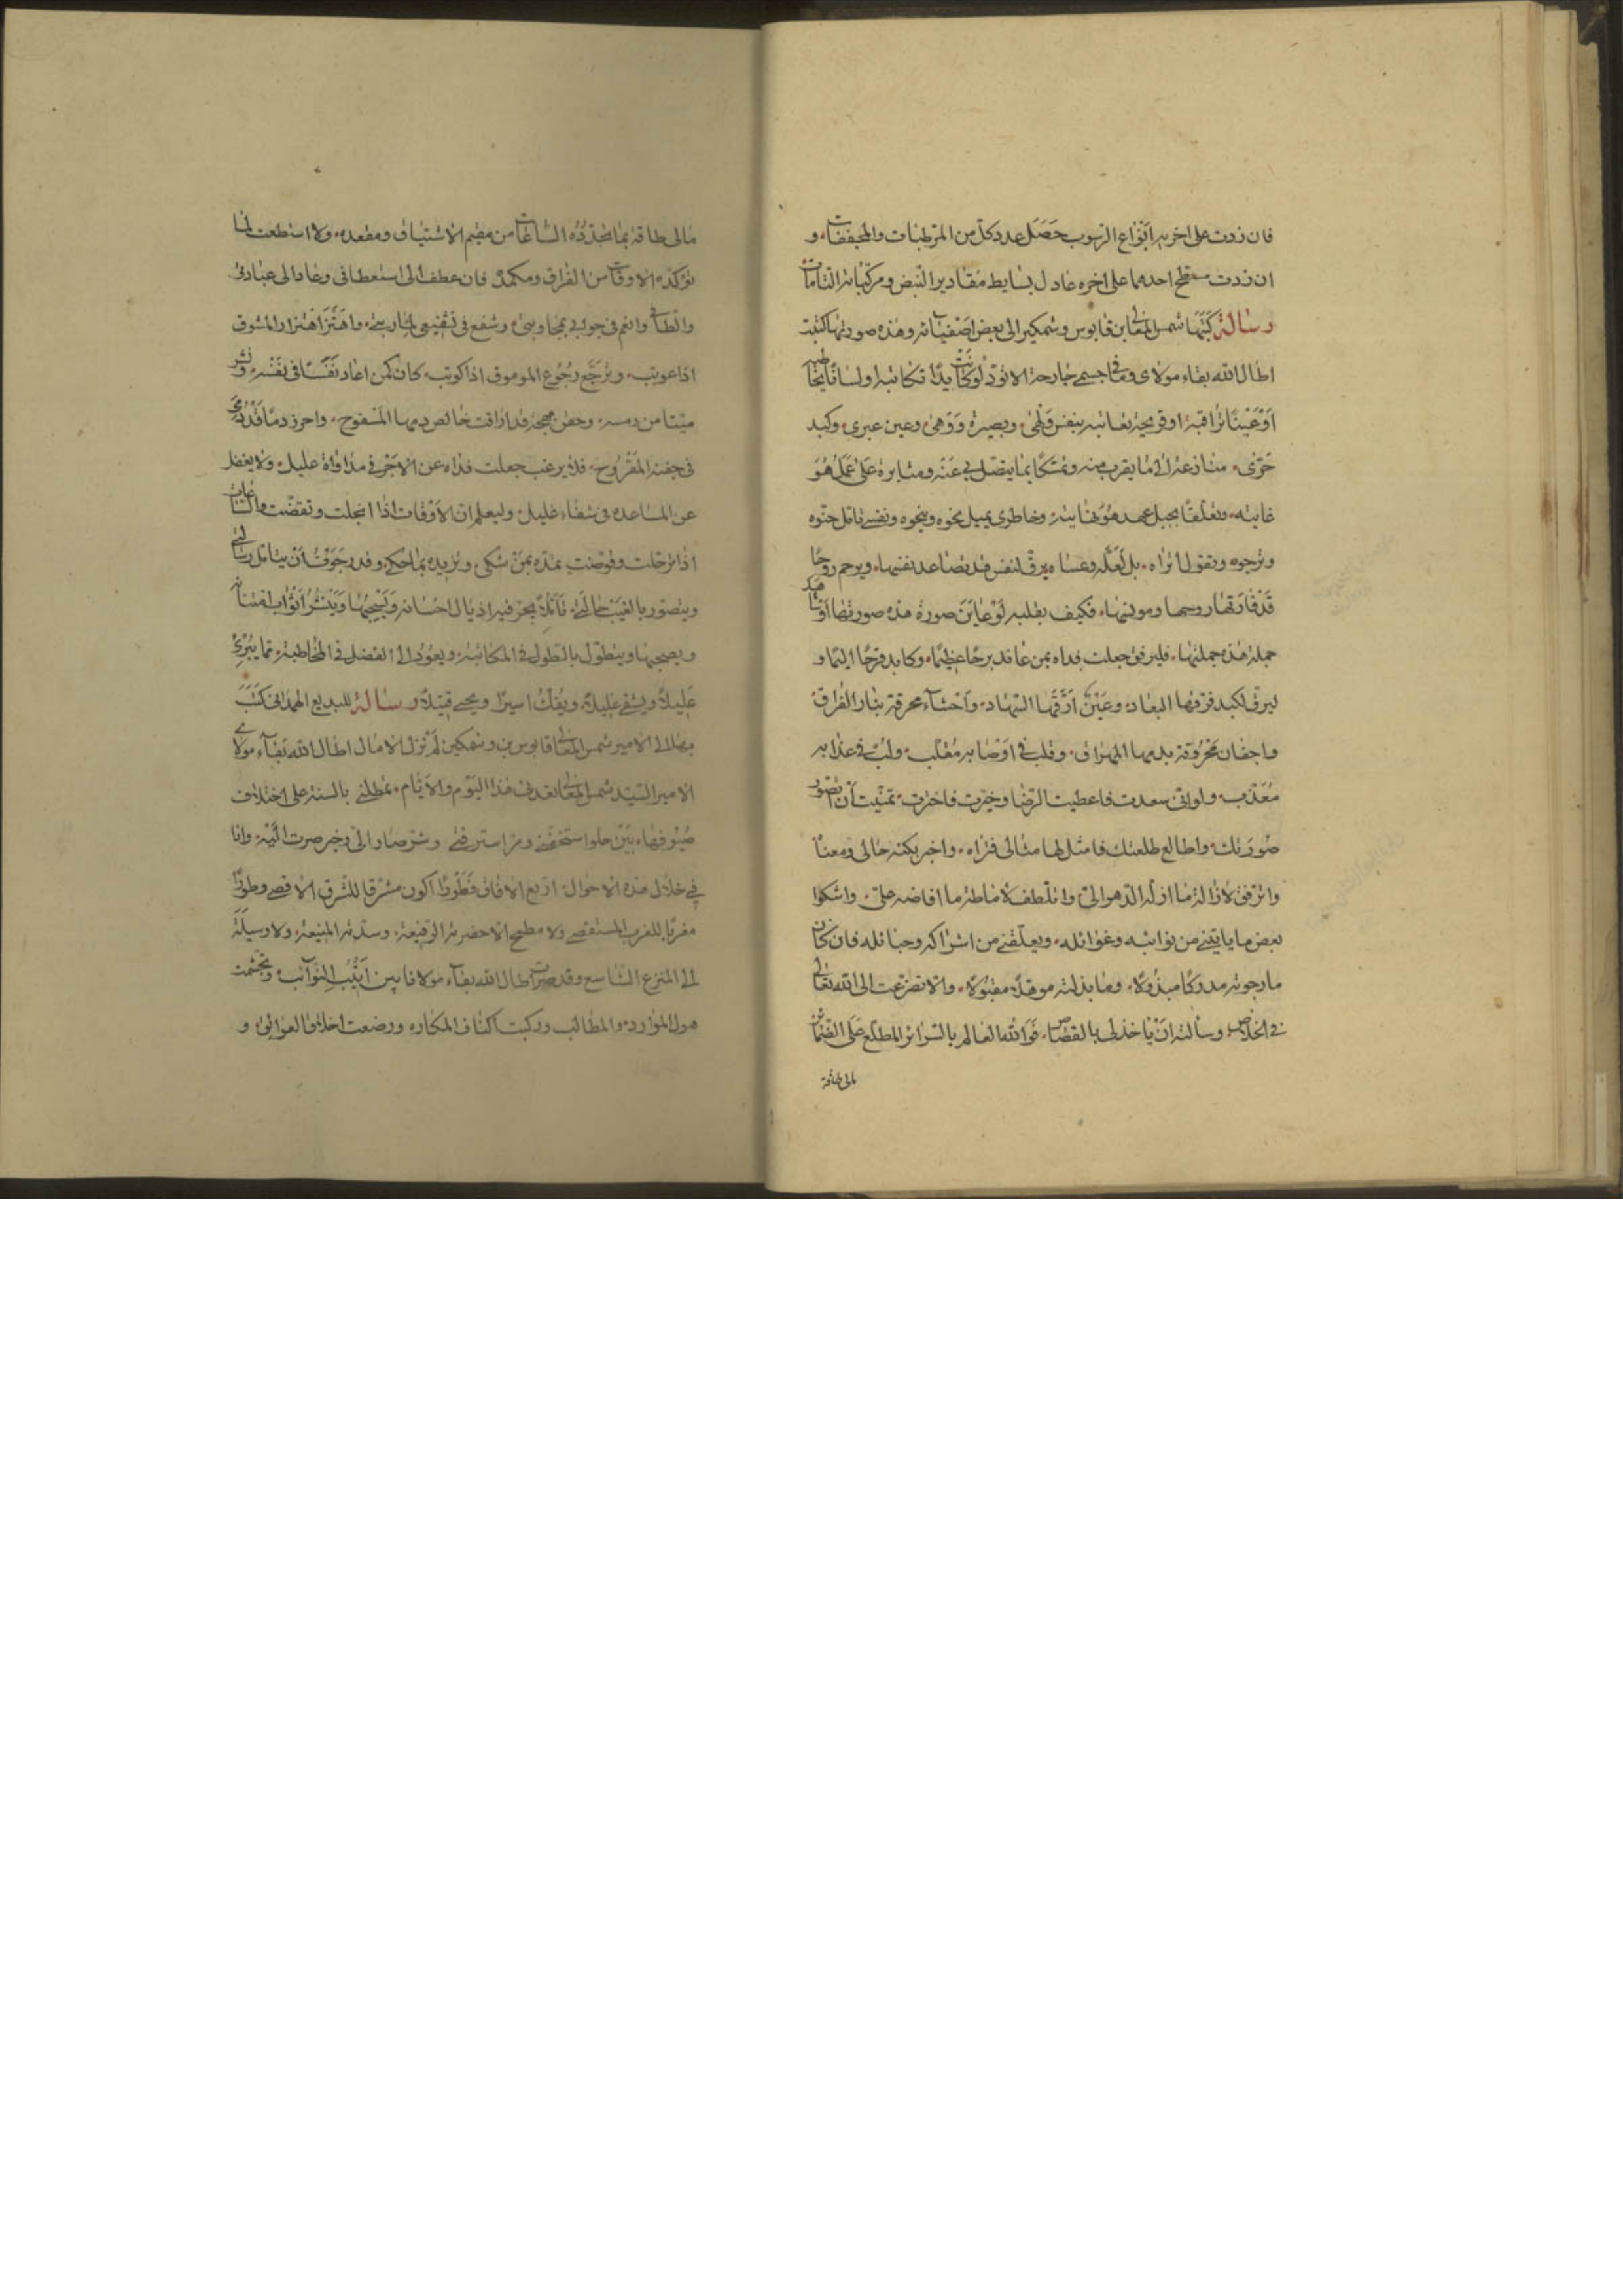 فان زدت على اخريه انواع الرسوب حصل عدد كل من المرطبات والمجففات و
ان زدت مسطح احدهما على اخره عادل بسايط مقادير النبض ومركباته التامات
رسالة كتبها شمس المعالى بن قابوس وشمكير الى بعض اصفيائه وهذه صورتها كتبت
اطال الله بقاء مولاى وما فى جسمى جارحة الا تود لو كانت يدا تكاتبه او لسانا يخاطبه
اَوْ عَيْنًا تراقبه او قريحة تعاتبه بنفس وَلْهىٰ وبصيرة وَرْهىٰ وعين عبرى وكبد
حَرّى منازعة الى ما يقرب منه وتمسكا بما يتصل بى عَنْه ومثابرة عَلىٰ عَمَلٍ هُوَ
غايته وتعلّقًا بحبل عهد هُوَ نهايته وخاطرى يميل نحوه وينحوه ونفسى تامل حنوه
وترجوه وتقول اتراه بل لَعَلَّه وعساه يرقّ لنفس قد تصاعد نفسها ويرحم روحًا
قَدْ فارَقَها روحها ومونسها فكيف بقلبه لَوْ عايَنَ صورة هذه صورتها او شاهد
جملة هذه جملتها فليرفق جعلت فداه بمن عاند برحًا عظيمًا وكابد قرحًا اليمًا و
ليرق لكبد فرقها البعاد وعَيْن اَرَّقَها السّهاد واَحْشآء محرقة بنار الفراق
واجفان محرُوقة بدمعها المهراق وقلب فى اَوْصابه مُقلّب ولبّ فى عذابه
مُعَذّب ولو انى سعدت فاعطيت الرضا وخيّرت فاخترت تمنّيت اَنْ اتصوّر
صُورَتك واطالع طلعتك فامثل لها مثالى فتراه واخبر بكنه حالى ومعناه
واترفق لازالة ما ازلّه الدهر الىّ واتلطف لاماطة ما افاضه علىّ واشكوا
بعض ما ياتينى من نوائبه وغوائله ويعلّقنى من اشراكه وحبائله فان كان
ما رجوته مدركًا مبذولًا وما بذلته موقعا مقبولًا والا تضرّعت الى الله تعالى
فى الخلاص وسألته اَنْ ياخذ لى بالقصاص فَوَ الله العالم بالسرائر المطلع عَلَى الضمائر
مالى طاقة
مالى طاقة بما تجدّدُه الساعات من مقيم الاشتياق ومقعده ولا استطعت لما
تؤكّده الاوقات من الفراق ومكمده فان عطف الى استعطافى وعاد الى عبادته
والطافى وانعم فى جوابى بمجاوبتى وشفع
اذا عوتب ويَرْجَع رُجُوع الموموق اذا كوتب كان كمن اعاد نَفَسًا فى نفسه ونشر
ميّتا من رمسه وحقن مهجة قد اراقت خالص دمها المسفوح واحرز دمًا
فى جفنه المقروح فلا يرغب جعلت فداه عن الاَجْر فى مداواة عليل ولا يغفل
عن المساعدة فى شفاء غليل وليعلم ان الاَوْقات اذا انجلت وتقضّت والساعات
اذا ترحلت وقوّضت وقد رجَوْتُ اَنْ يتامّل رسالتى
ويتصوّر بالغيب حالتى
ويتطوّل بالتطول فى المكاتبة ويعود الى الفضل فى المخاطبة
عَليلًا ويشفى غليلًا ويَفكّ اسيرًا ويحيى قتيلًا رسالة للبديع الهمدانى كتَبَ
بها الى الامير شمس المعالى قابوس بن وشمكير لَمْ تزل الامال اطال الله بقآء مولاى
الامير السّيد شمس المعالى تعدنى هذا اليَوْم والاَيّام تمطلنى بالسنة على اختلاف
صُنوفها بَيْن حلو استخفّنى ومرّ استرقّنى وشرّ صار الىّ وخير صرت اليه وانا
فى خلال هذه الاحوال اذرع الافاق فَطَوْرًا اكون مشرّقا للشرق الاقصى وطورًا
مغربًا للغرب المستقصى ولا مطمح الا حضرته الرفيعة وسدّته المنيعة ولا وسيلَة
الى المنزع الشاسع وقد صرت اطال الله بقآء مولانا بين اَنْيُبِ النوآئب وتجشّمت
هول الموارد والمطالب وركبت اكتاف المكاره ورضعت اخلاف العوائق و